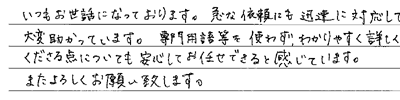 いつもお世話になっております。急な依頼にも迅速に対応して
大変助かっています。専門用語等を使わず、わかりやすく詳しく
くださる点についても安心してお任せできると感じています。
またよろしくお願い致します。